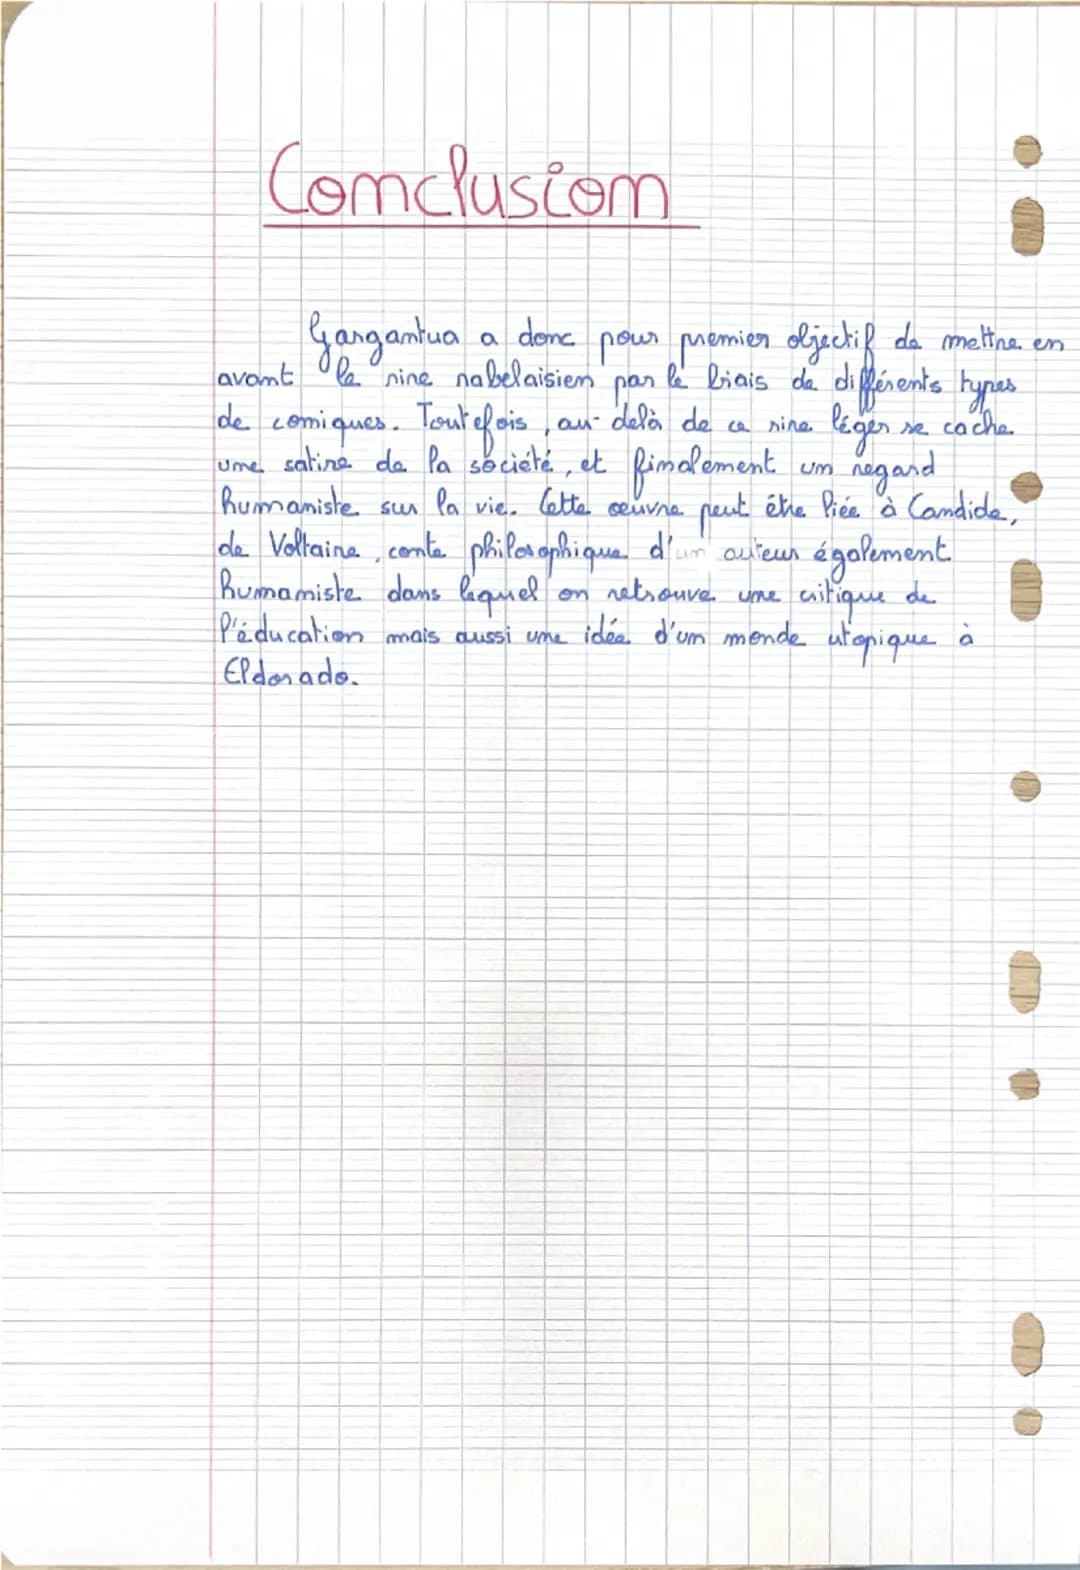 Conclusion
Gargantua a donc pour premier objectif de mettre en
avant le rire rabelaisien par le biais de différents types
de comiques. Toutefois, au-delà de ce rire léger se cache
une satire de la société, et finalement un regard
humaniste sur la vie. Cette œuvre peut être liée à Candide,
de Voltaire, conte philosophique d'un auteur également
humaniste dans lequel on retrouve une critique de
l'éducation mais aussi une idée d'un monde utopique à
Eldorado.